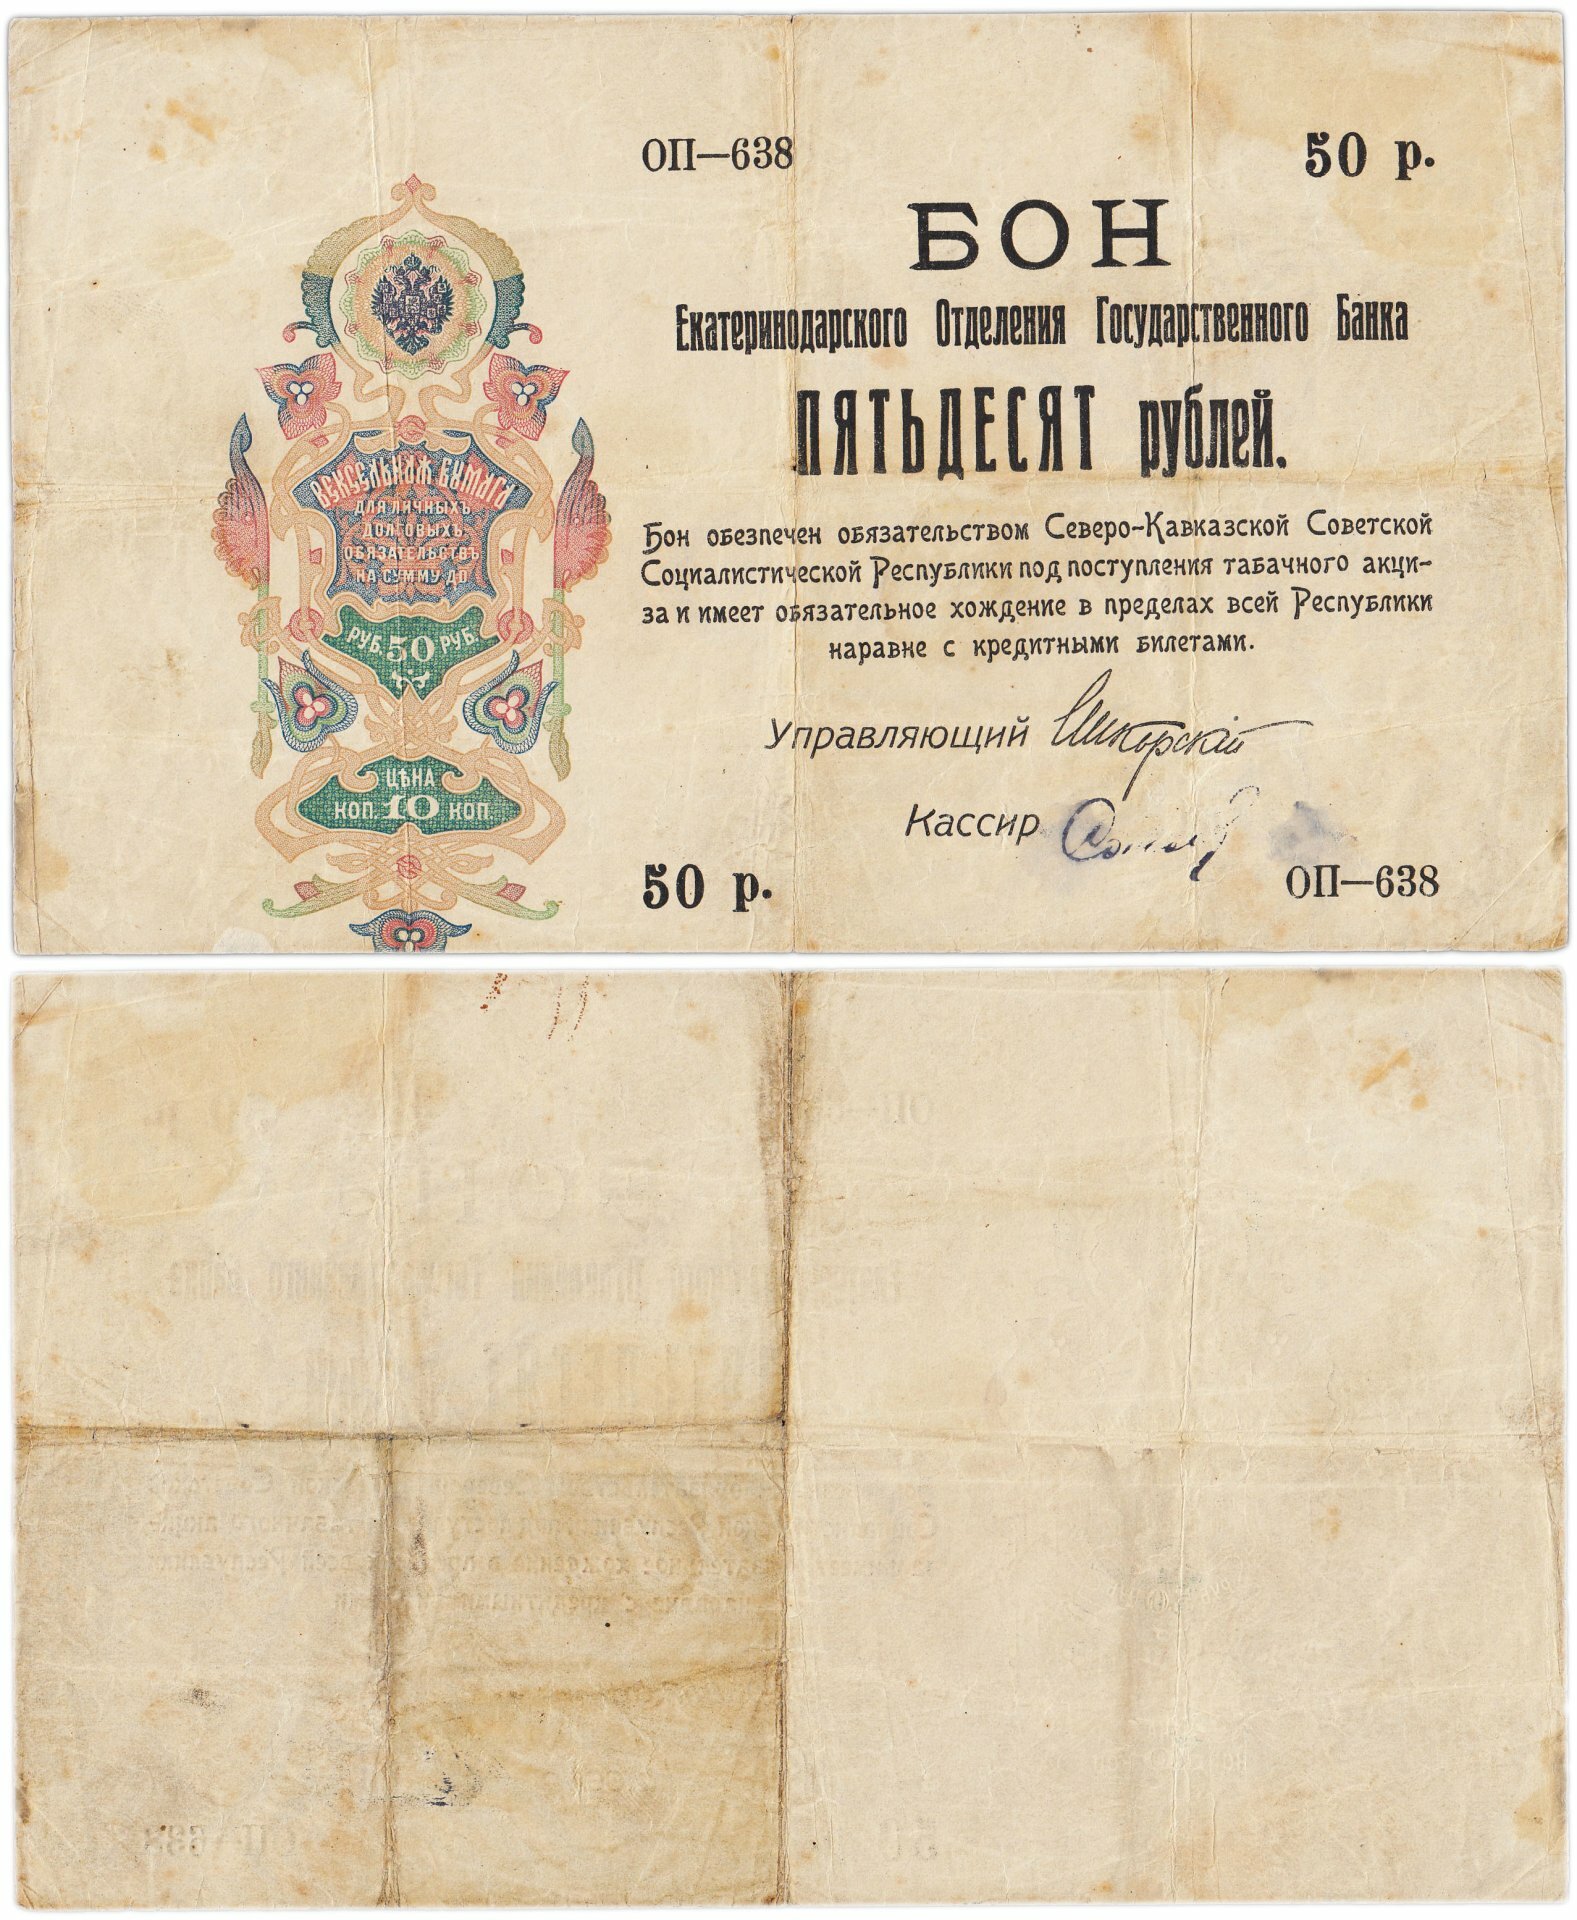 ОП—638
50 р.
БОН
Екатеринодарского Отделения Государственного Банка
ПЯТЬДЕСЯТ рублей.
Бон обезпечен обязательством Северо-Кавказской Советской
Социалистической Республики под поступления табачного акци-
за и имеет обязательное хождение в пределах всей Республики
наравне с кредитными билетами.
Управляющий
Кассир
50 р.
ОП—638
ВЕКСЕЛЬНАЯ БУМАГА
ДЛЯ ЛИЧНЫХЪ
ДОЛГОВЫХЪ
ОБЯЗАТЕЛЬСТВЪ
НА СУММУ ДО
РУБ. 50 РУБ.
ЦѢНА
КОП. 10 КОП.